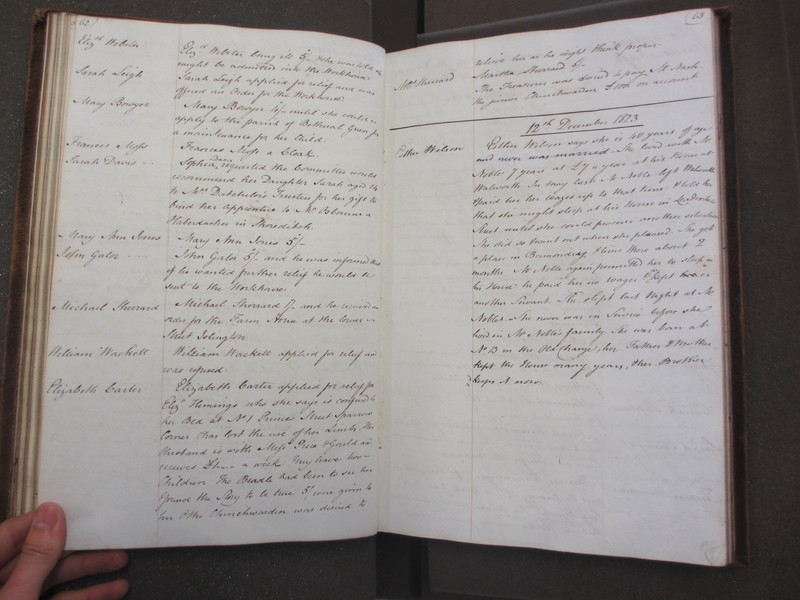 62)
Eliz.th Webster
Eliz.th Webster being ill 5/- & she was told she
might be admitted into the Workhouse
Sarah Leigh
Sarah Leigh applied for relief and was
offered an Order for the Workhouse
Mary Bowyer
Mary Bowyer 4/- until she could
apply to the parish of Bethnal Green for
a maintenance for her Child.
Frances Moss
Frances Moss a Cloak
Sarah Davis
Sophia Davis requested the Committee would
recommend her Daughter Sarah aged 14
to Mrs Trustees for her gift to
bind her apprentice to Mr Osbourne a
Haberdasher in Shoreditch.
Mary Ann Jones
Mary Ann Jones 5/-
John Gales
John Gales 5/- and he was informed that
if he wanted further relief he would be
sent to the Workhouse.
Michael Sherrard
Michael Sherrard 1/- and he received an
order for the Farm House at the lower
Street Islington.
William Wackett
William Wackett applied for relief and
was refused
Elizabeth Carter
Elizabeth Carter applied for relief for
Eliz.th Hemings who she says is confined to
her Bed at No 1 Princes Street Sparrow
Corner & has lost the use of her Limbs, Her
Husband is with Mess.rs Price & Gould and
receives a week They have two
Children The Beadle had been to see her
& found the Story to be true 5/- were given to
her & the Churchwarden was desired to
(63
relieve her as he might think proper.
Mrs Sherrard
Martha Sherrard 5/-
The Treasurer was desired to pay Mr Nash
the junior Churchwarden £100 on account
12th December 1823
Esther Wilson
Esther Wilson says she is 40 years of age
and never was married She lived with Mr
Noble 7 years at £7 a year at his House at
Walworth In May last Mr Noble left Walworth
& paid her her wages up to that time & told her
that she might sleep at his House in
Street until she could procure another situation
She did so & went out where she pleased. She got
a place in Bermondsey & lived there about 2
months Mr Noble again permitted her to sleep in
his House he paid her no wages & kept
another Servant. She slept last Night at Mr
Nobles. She never was in Service before she
lived in Mr Noble's family. She was born at
No 13 in the Old Change, her Father & Mother
kept the House many years, & her Brother
keeps it now.